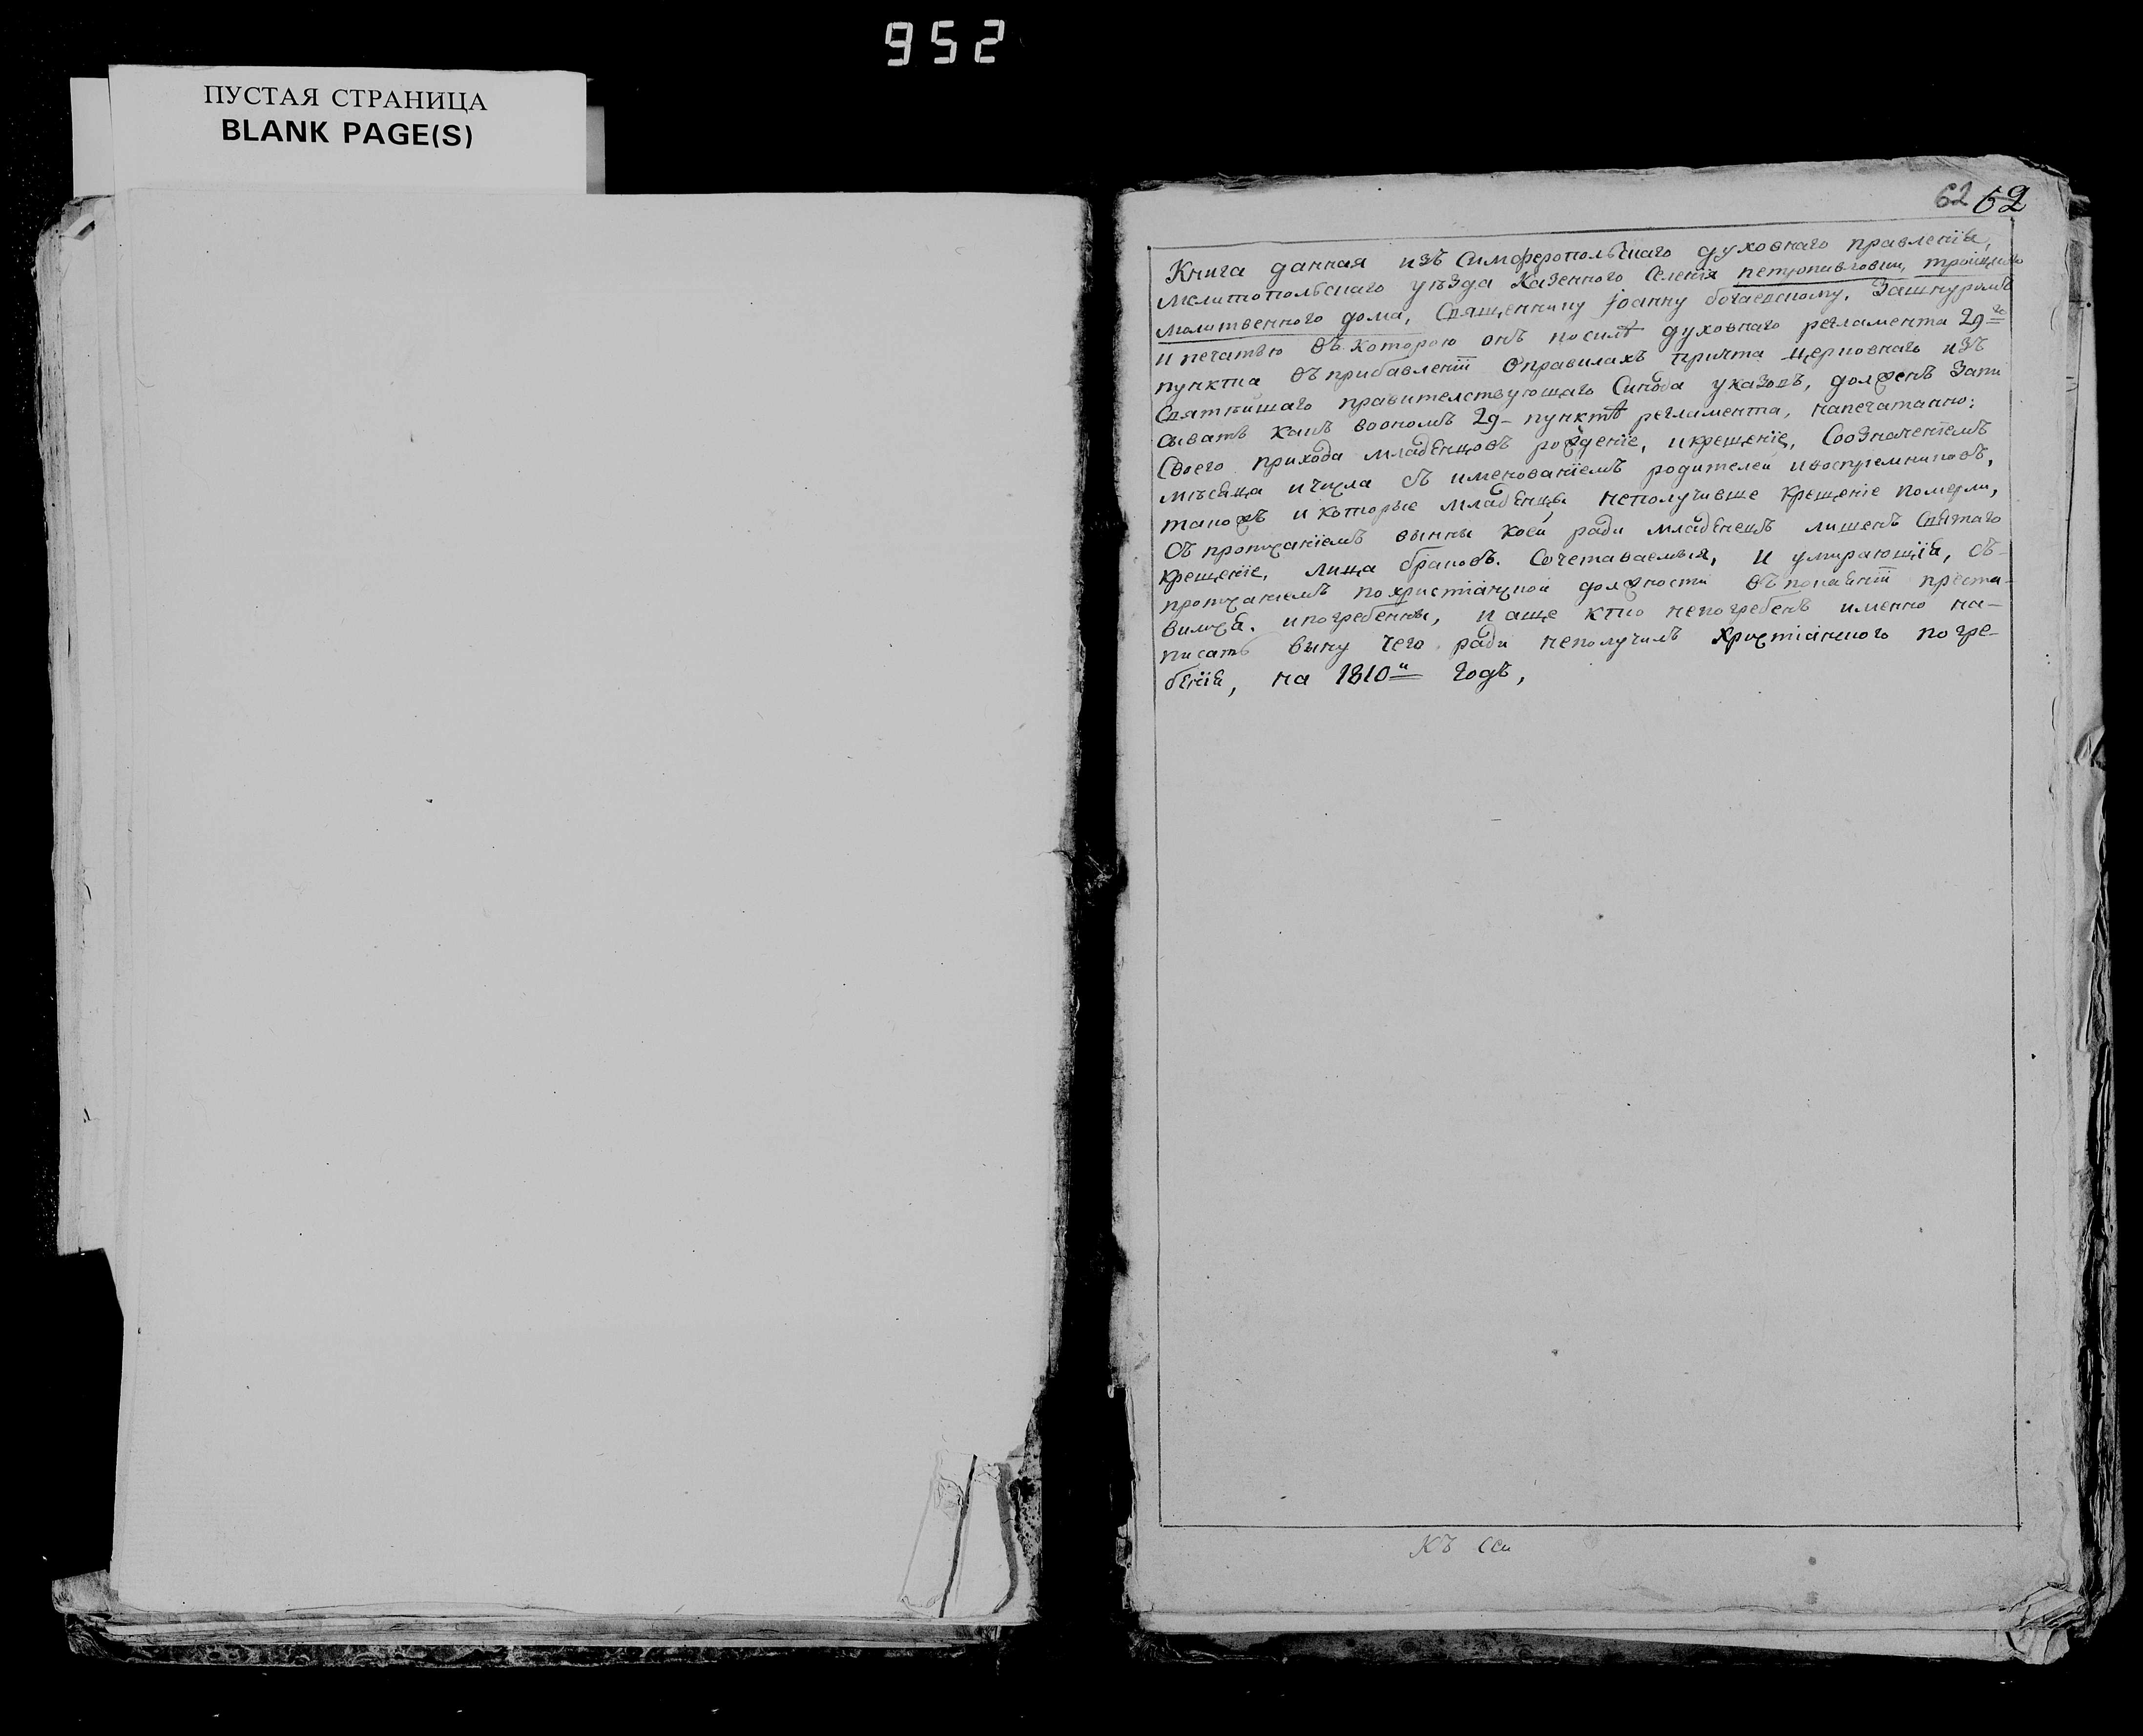 952
ПУСТАЯ СТРАНИЦА
BLANK PAGE(S)
62 62
Книга данная изъ Симферопольскаго духовнаго правленія,
мелитопольскаго уѣзда Казенного Селенія петропавловки, троицкого
молитвенного дома, Священнику Іоанну бочаевскому, Зашнуромъ
и печатью въ которою онъ посилѣ духовнаго регламента 29го
пункта въ прибавленіи Оправилахъ причта церковнаго изъ
Святѣйшаго правителствующаго Синода указовъ, долженъ Запи
сывать какъ воономъ 29- пунктѣ регламента, напечатанно:
Своего прихода младенцовъ рожденіе, икрещеніе, Соозначеніемъ
мѣсяца ичисла съ именованіемъ родителей ивоспріемниковъ,
такожъ и которые младенцы неполучивше Крещеніе померли,
Съ прописаніемъ винны коей ради младенецъ лишенъ Святаго
крещеніе, лица браковъ. Сочетаваемыя, и умирающія, съ-
прописаніемъ похристіанской должности въ покаяніи преста-
вились. ипогребенны, и аще кто непогребенъ именно на-
писать вину чего ради неполучилъ христіанского погре-
бенія, на 1810й годъ,
Къ Сей